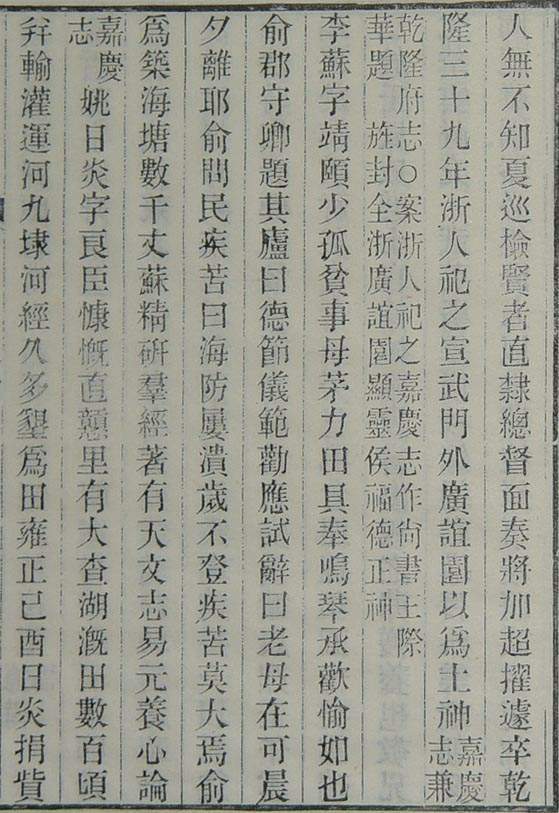 人無不知夏巡檢賢者直隸總督面奏將加超擢遽卒乾
隆三十九年浙人祀之宣武門外廣誼園以爲土神嘉慶志兼
乾隆府志○案浙人祀之嘉慶志作尚書王際
華題 旌封全浙廣誼園顯靈侯福德正神
李蘇字靖頤少孤貧事母茅力田具奉鳴琴承歡愉如也
俞郡守卿題其廬曰德節儀範勸應試辭曰老母在可晨
夕離耶俞問民疾苦曰海防屢潰歲不登疾苦莫大焉俞
爲築海塘數千丈蘇精硏羣經著有天文志易元養心論
嘉慶志 姚日炎字良臣慷慨直戇里有大查湖漑田數百頃
幷輸灌運河九埭河經久多墾爲田雍正己酉日炎捐貲